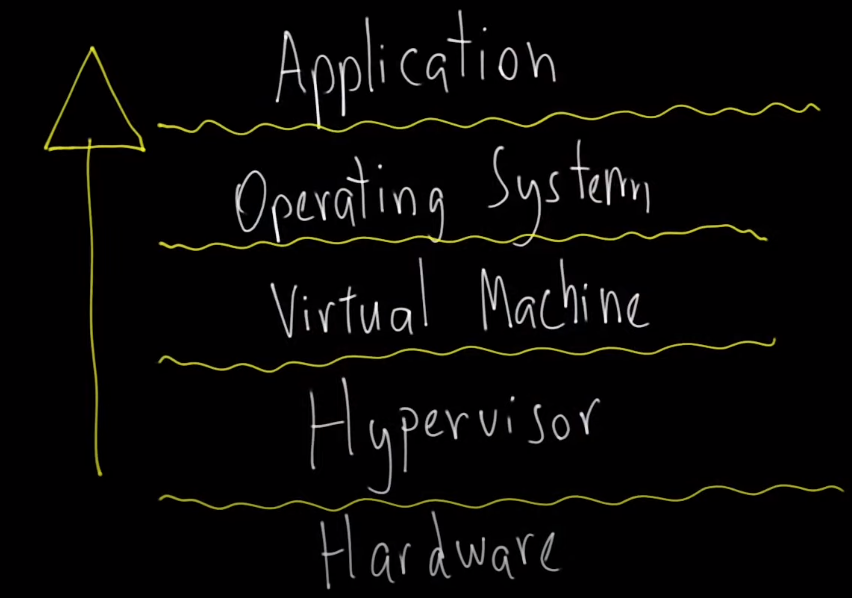 Application
Operating System
Virtual Machine
Hypervisor
Hardware